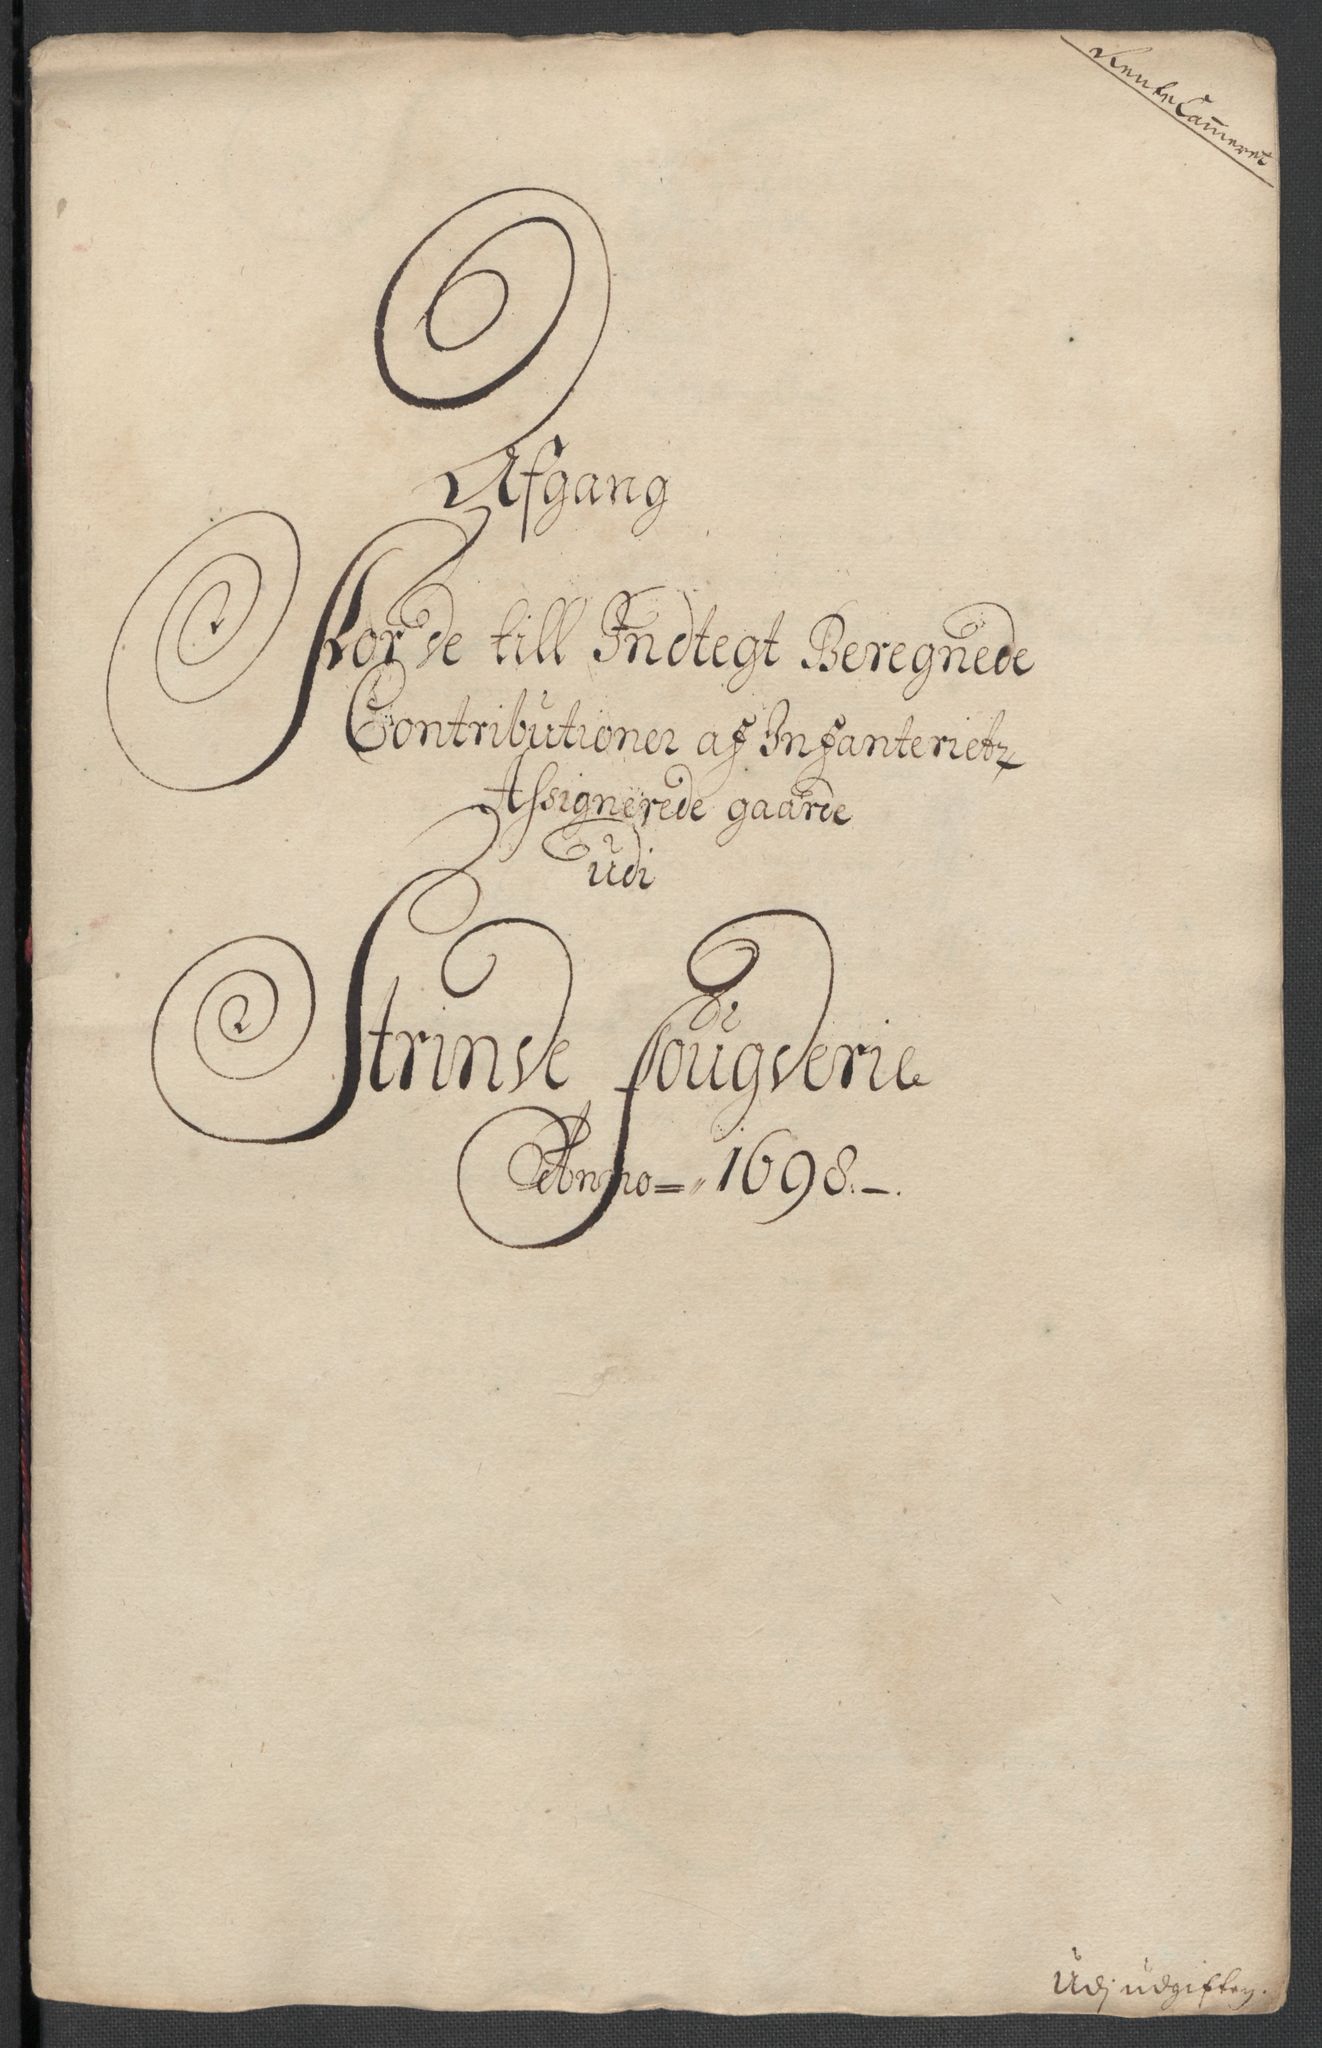 Rente Cam̄eret
Afgang
For de till Indtegt Beregnede
Contributioner af Infanteriets
Assignerede gaarde
Udi
Strinde fougderie
Anno = 1698. -.
Udj udgiften.